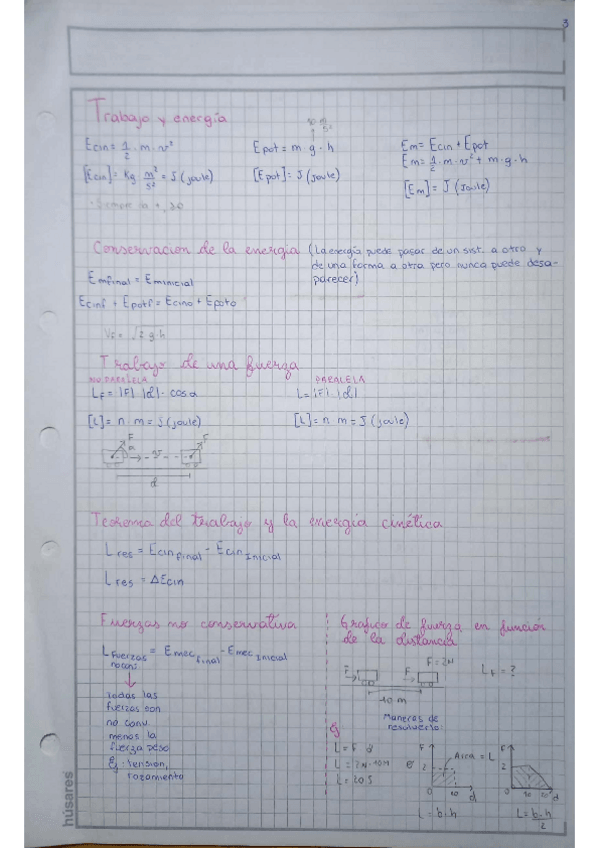 3
Trabajo y energía
Ecin = 1/2 · m · v²
[Ecin] = Kg m²/s² = J (joule)
Epot = m · g · h
[Epot] = J (Joule)
Em = Ecin + Epot
Em = 1/2 · m · v² + m · g · h
[Em] = J (Joule)
Conservacion de la energia (La energía puede pasar de un sist. a otro y
de una forma a otra pero nunca puede desa-
parecer)
Emfinal = Eminicial
Ecinf + Epotf = Ecino + Epoto
VF = √2 g·h
Trabajo de una fuerza
NO PARALELA
LF = |F| · |d| · cos α
[L] = n · m = J (joule)
PARALELA
L = |F| · |d|
[L] = n · m = J (Joule)
F α v F
d
Teorema del trabajo y la energía cinética
Lres = Ecin final - Ecin Inicial
Lres = ΔEcin
Fuerzas no conservativa
L Fuerzas no cons. = Emec final - Emec Inicial
todas las
fuerzas son
no conv.
menos la
fuerza peso
Ej: tension,
rozamiento
Grafico de fuerza en funcion
de la distancia
F F F = 2N
10 m
LF = ?
Maneras de
resolverlo:
Ej
L = F · d
L = 2N · 10M
L = 20 J
F 2 10 d
Area = L
L = b · h
F 2 10 20 d
L = b · h / 2
húsares